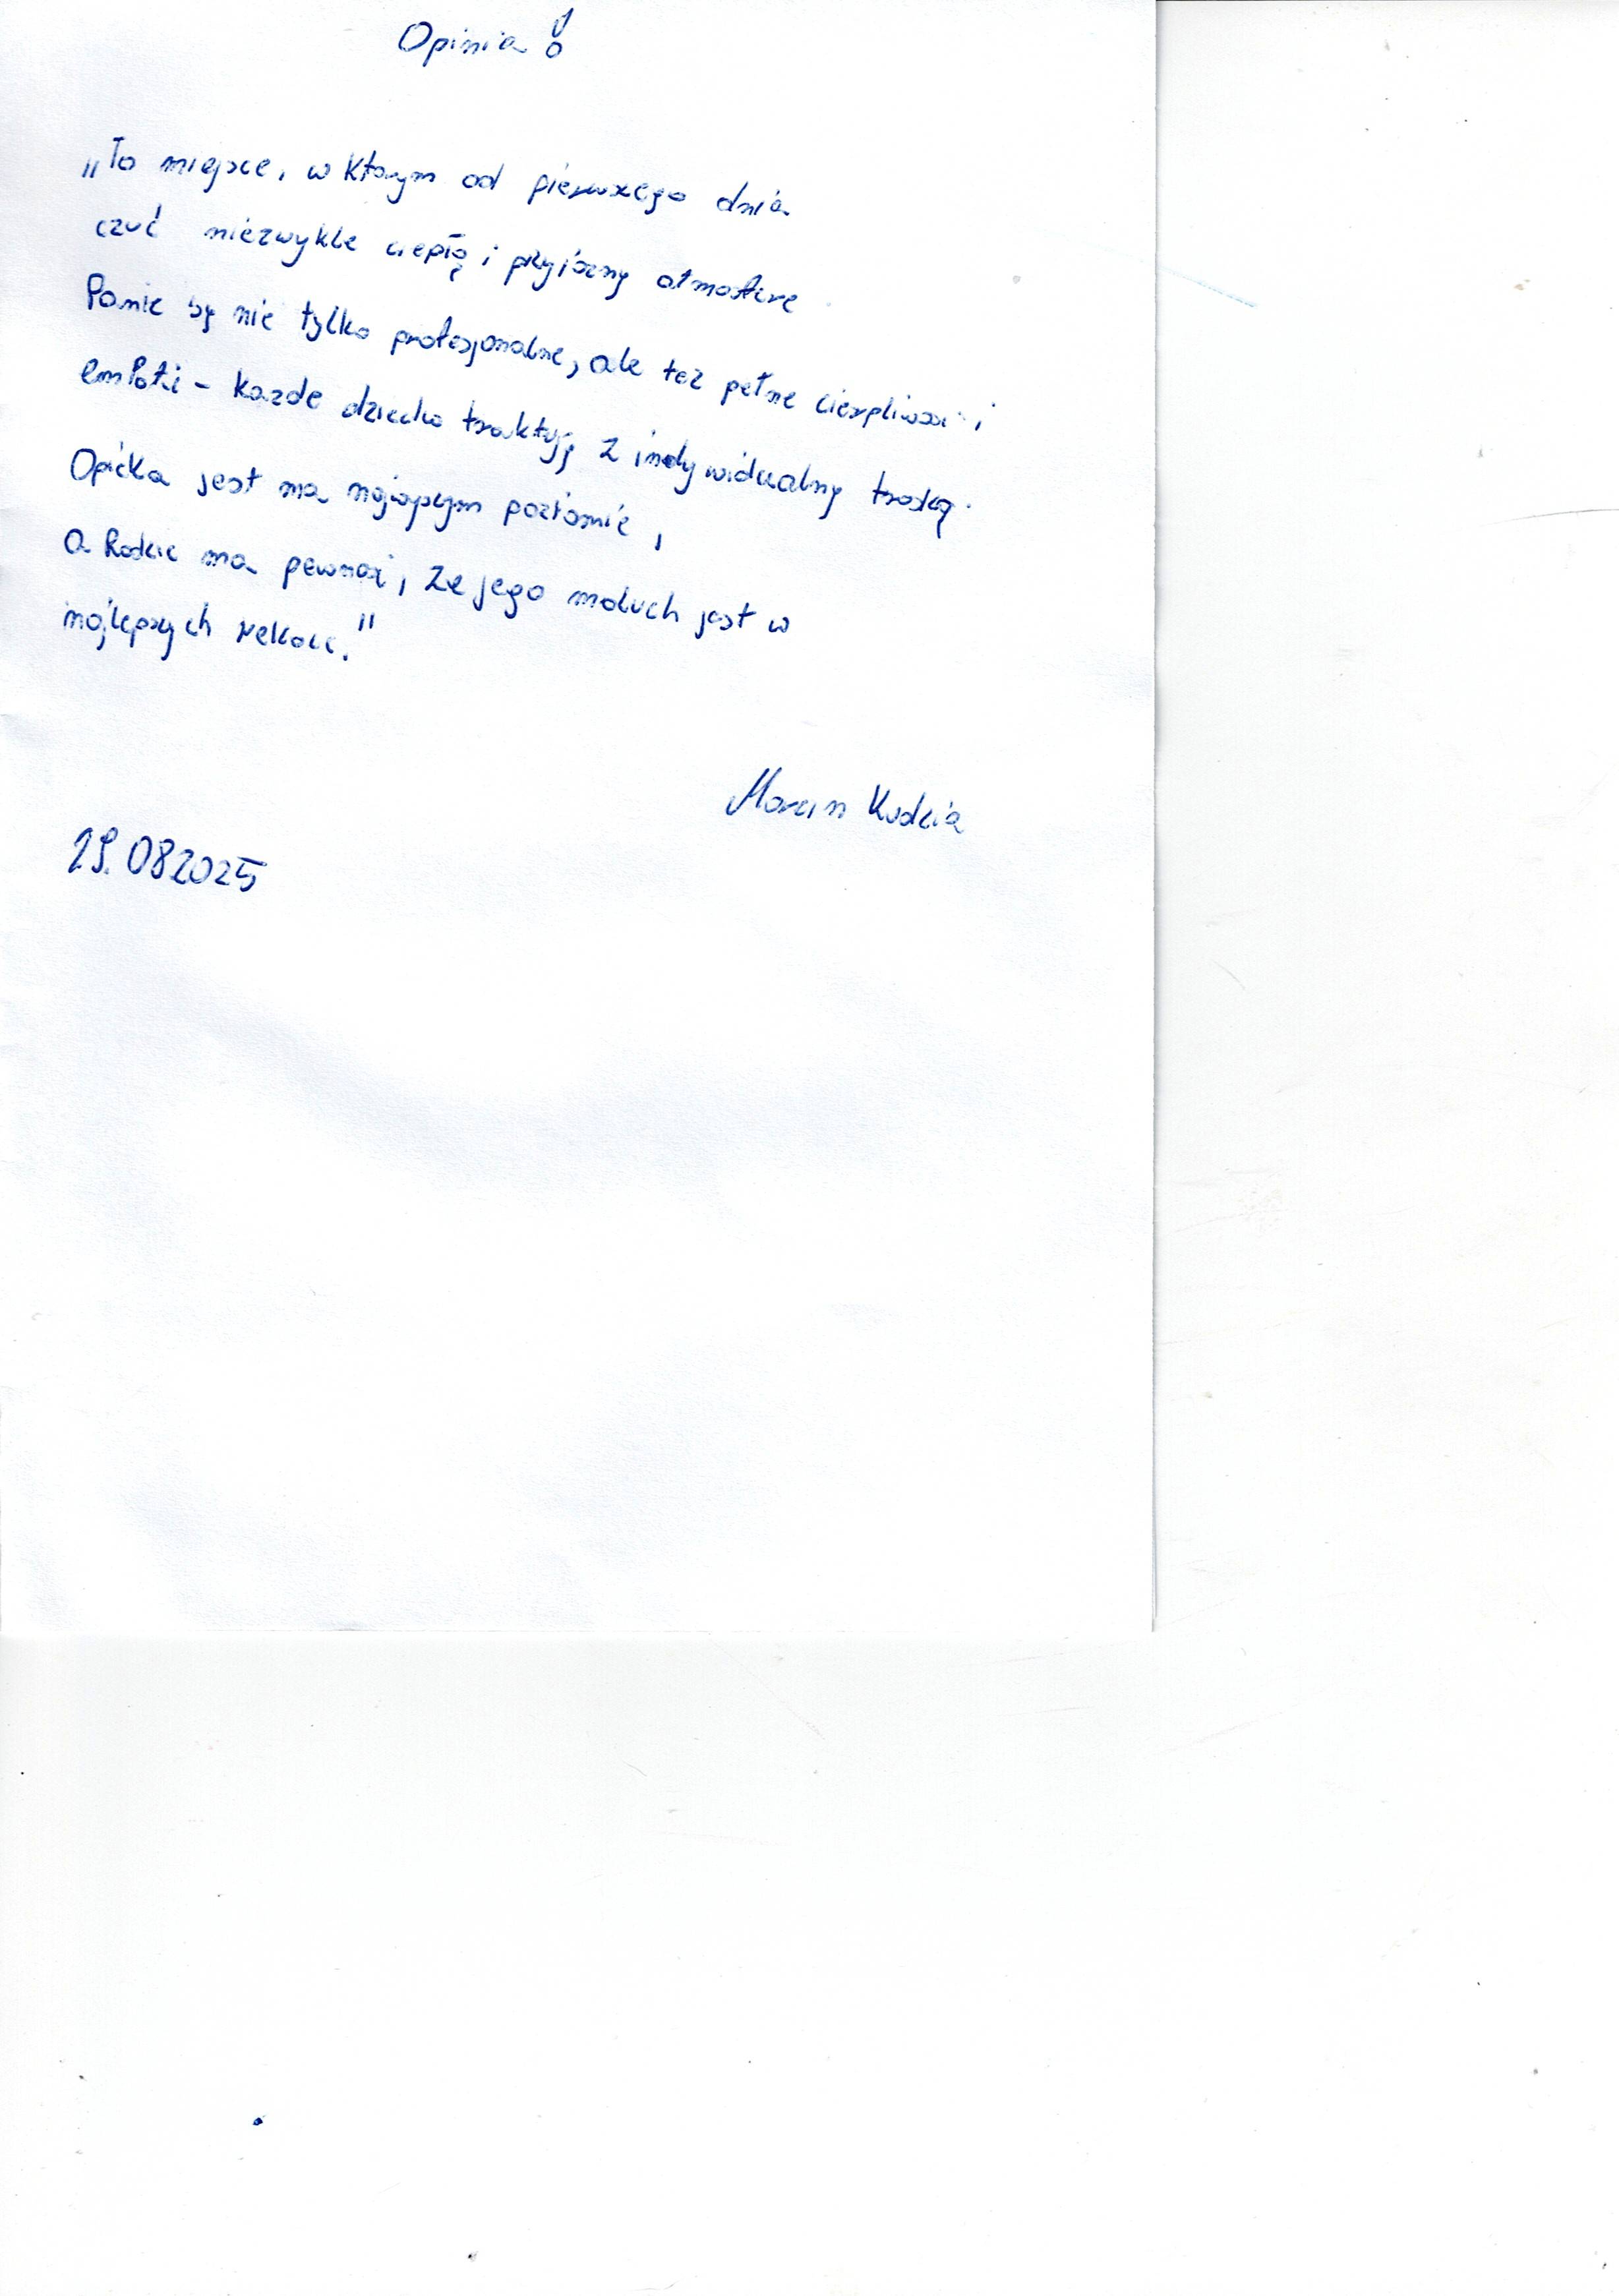 Opinia!
"To miejsce, w którym od pierwszego dnia
czuć niezwykle ciepłą i przyjazną atmosferę
Panie są nie tylko profesjonalne, ale też pełne cierpliwości i
emPatii - każde dziecko traktują z indywidualną troską.
Opieka jest na najwyższym poziomie,
a Rodzic ma pewność, że jego maluch jest w
najlepszych rękach."
Marcin Kudzia
19.082025